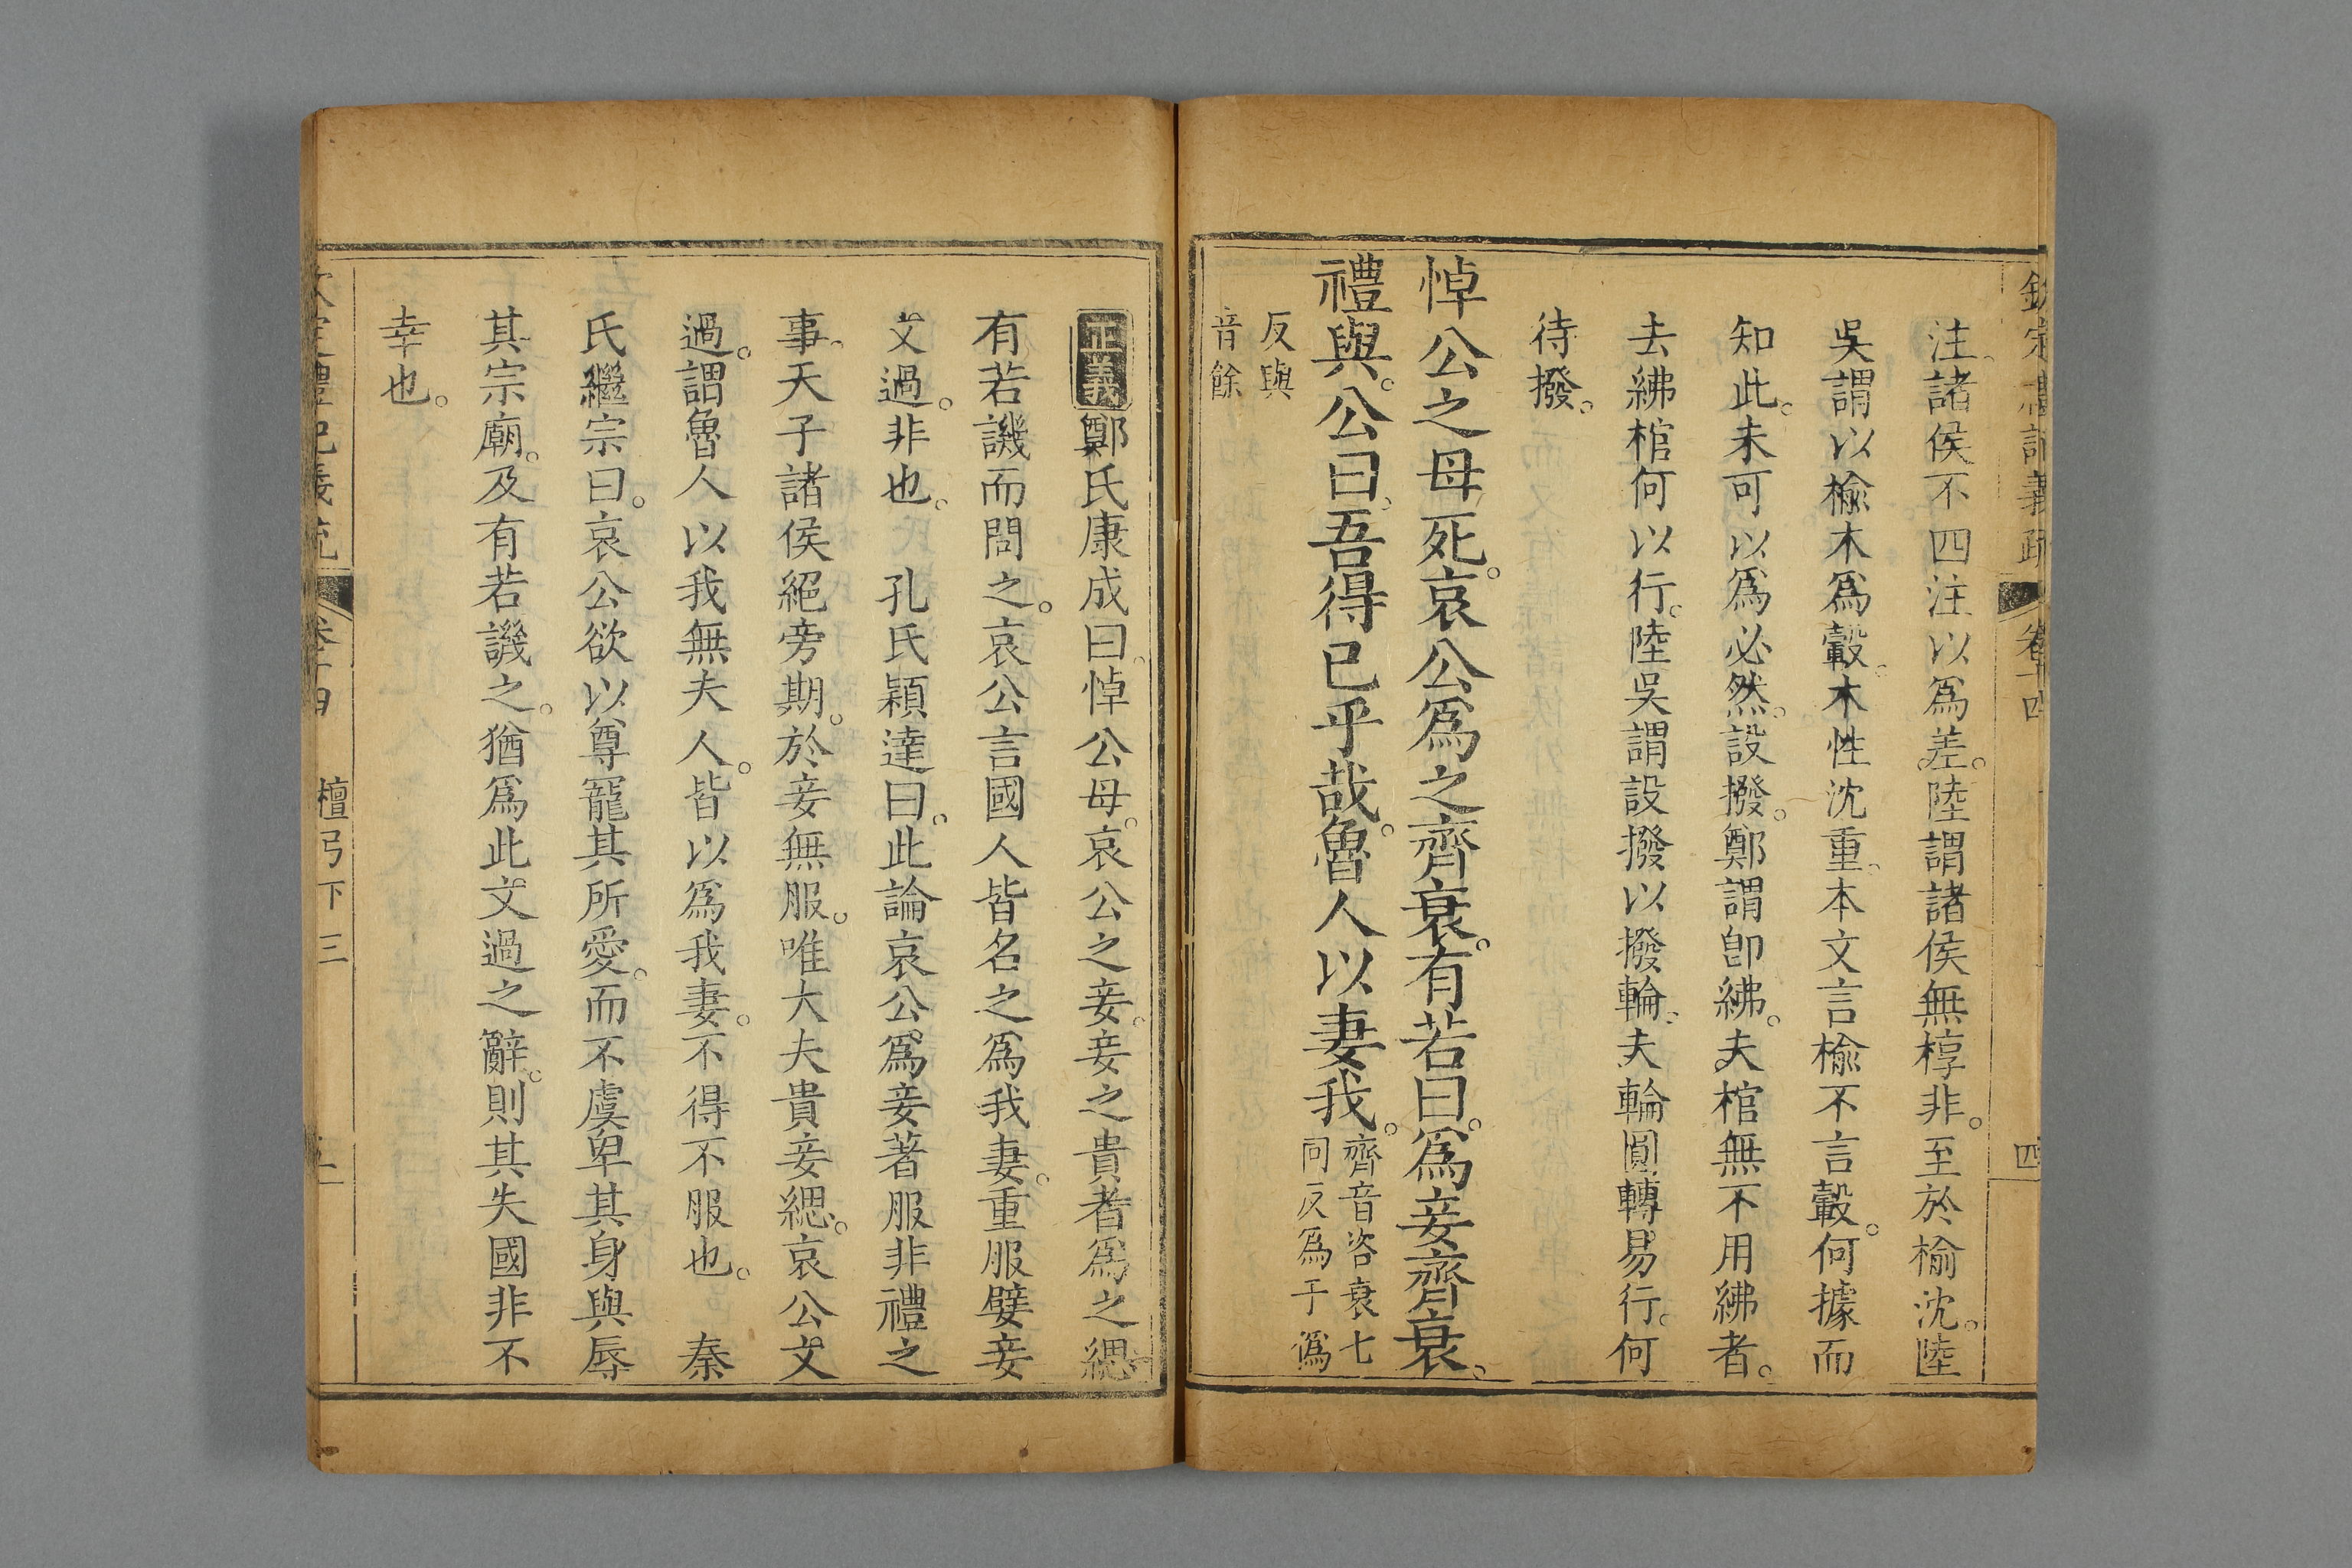 欽定禮記義疏 卷十四
四
注諸侯不四注以爲差陸謂諸侯無椁非至於榆沈陸
吳謂以榆木爲轂木性沈重本文言榆不言轂何據而
知此未可以爲必然設撥鄭謂卽紼夫棺無不用紼者
去紼棺何以行陸吳謂設撥以撥輪夫輪圓轉易行何
待撥
悼公之母死哀公爲之齊衰有若曰爲妾齊衰
禮與公曰吾得已乎哉魯人以妻我
齊音咨衰七
回反爲于僞
反與
音餘
正義鄭氏康成曰悼公母哀公之妾妾之貴者爲之緦
有若譏而問之哀公言國人皆名之爲我妻重服嬖妾
文過非也 孔氏穎達曰此論哀公爲妾著服非禮之
事天子諸侯絕旁期於妾無服唯大夫貴妾緦哀公文
過謂魯人以我無夫人皆以爲我妻不得不服也 秦
氏繼宗曰哀公欲以尊寵其所愛而不虞卑其身與辱
其宗廟及有若譏之猶爲此文過之辭則其失國非不
幸也
禮記義疏 卷十四 檀弓下三